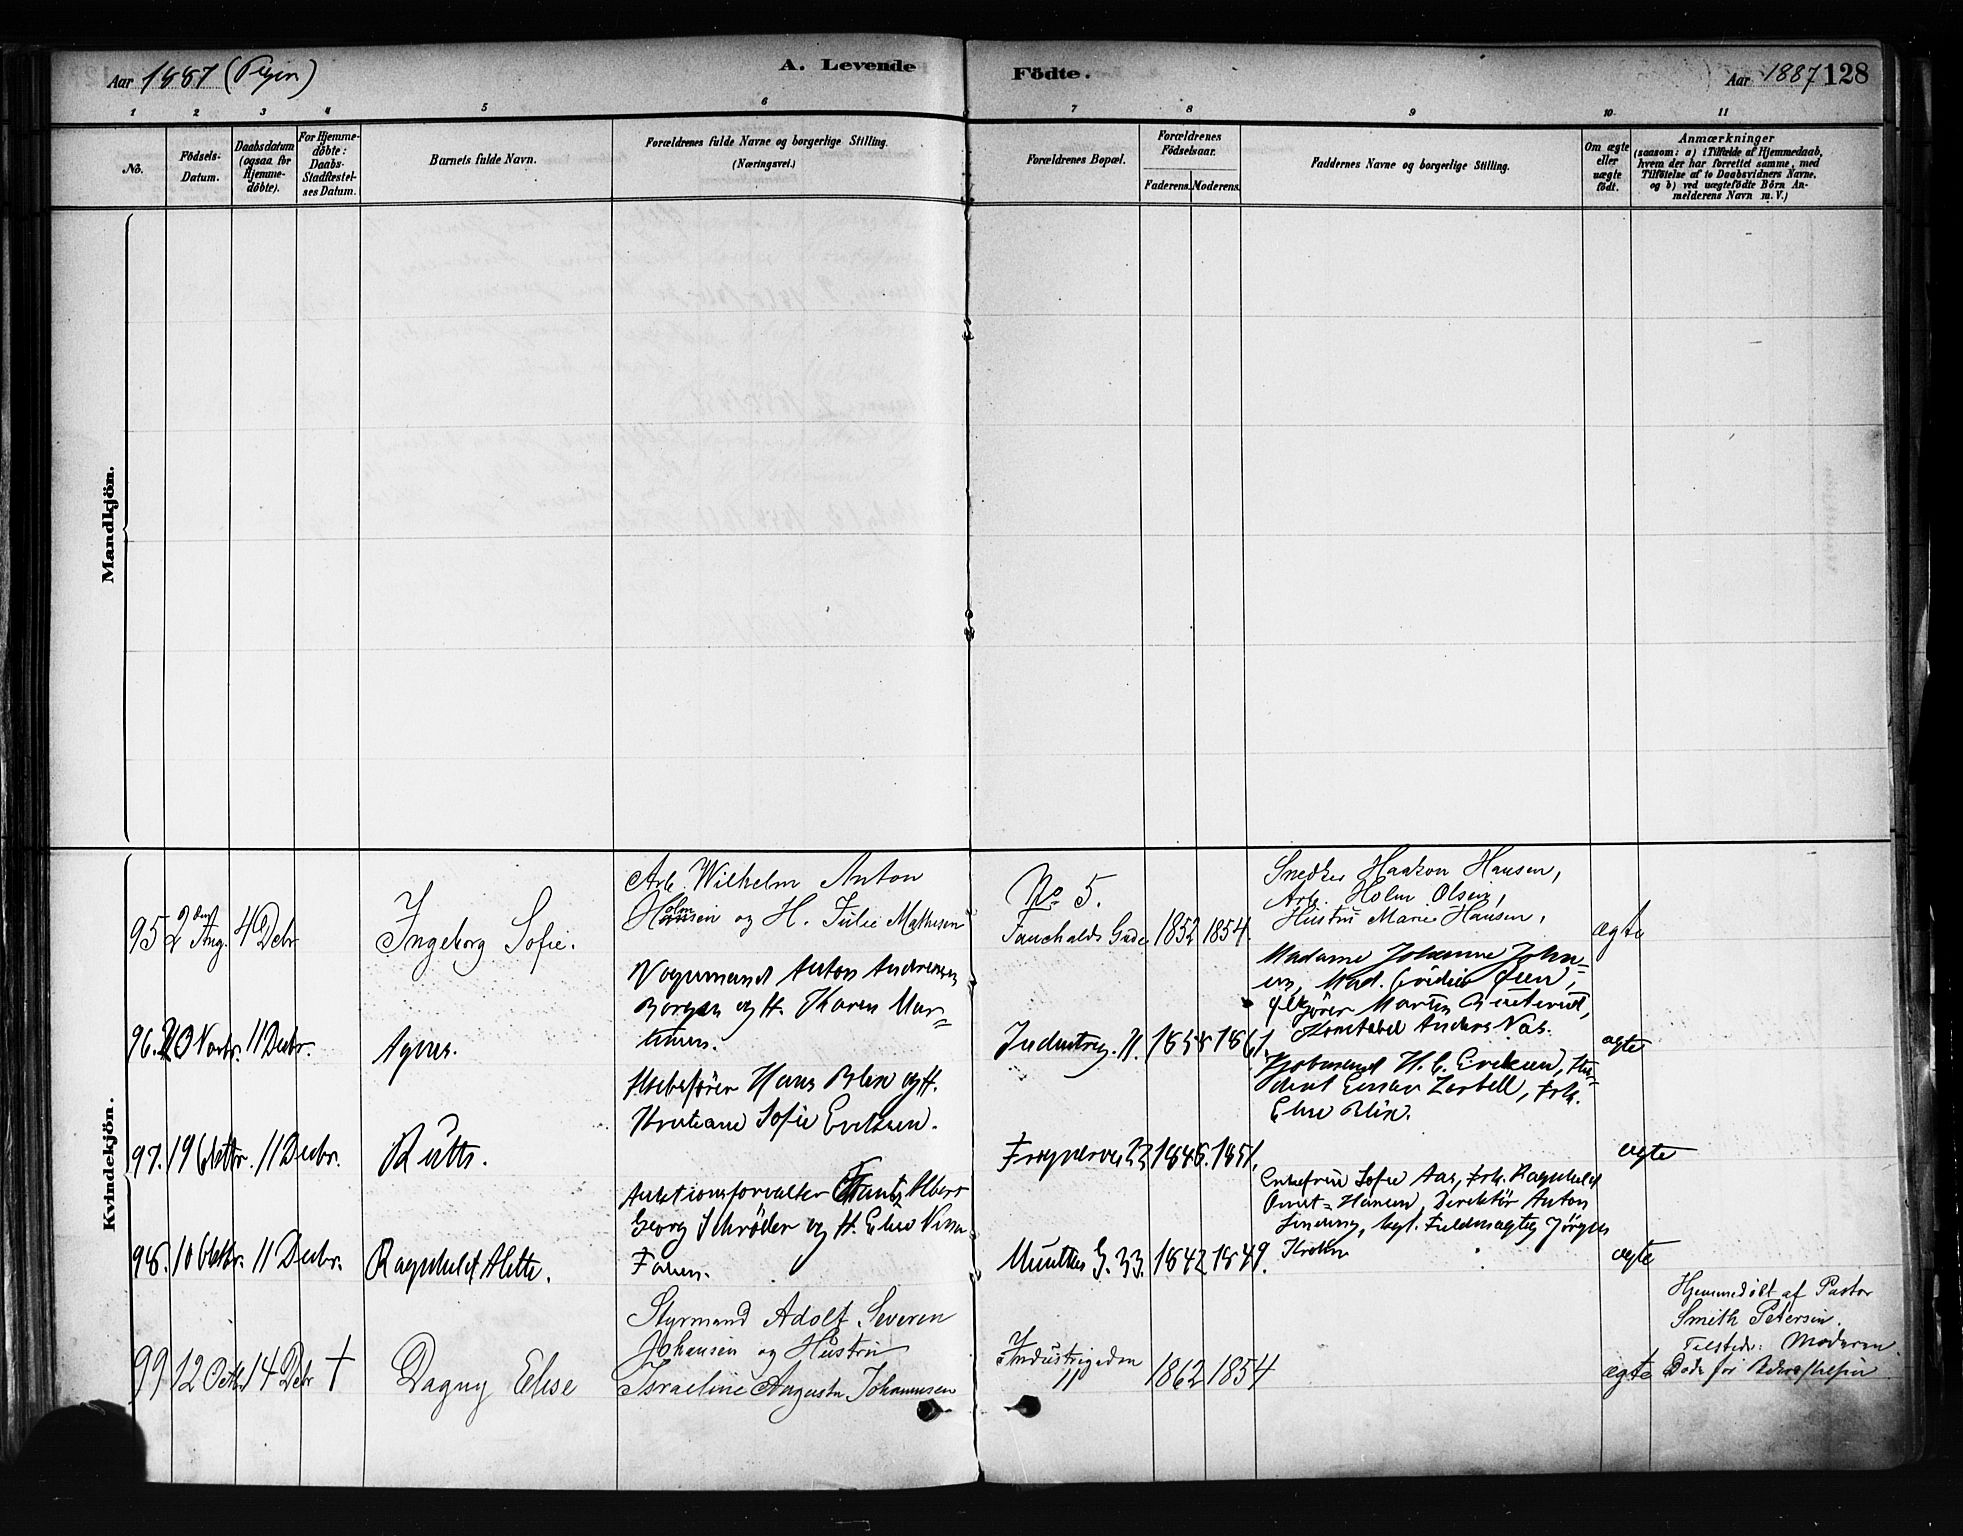 Aar 1887 (Piger)
A. Levende Födte.
Aar 1887 128
1 2 3 4 5 6 7 8 9 10 11
No.
Födsels-Datum.
Daabsdatum (ogsaa for Hjemme-döbte).
For Hjemme-döbte: Daabs-Stadfæstel-ses Datum.
Barnets fulde Navn.
Forældrenes fulde Navne og borgerlige Stilling.
(Næringsvei.)
Forældrenes Bopæl.
Forældrenes Födselsaar.
Faderens. Moderens.
Faddernes Navne og borgerlige Stilling.
Om ægte eller uægte födt.
Anmærkninger
(saasom: a) i Tilfælde af Hjemmedaab,
hvem der har forrettet samme, med
Tilföielse af to Daabsvidners Navne,
og b) ved uægtefödte Börn An-
melderens Navn m. V.)
Mandkjön.
Kvindekjön.
95 2 Aug. 4 Debr
Ingeborg Sofie.
Arb. Wilhelm Anton
Holm og H. Julie Mathisen
No 5.
Fauchalds Gade 1852 1854.
Snedker Haakon Hansen,
Arb. Holm Olsen,
Hustru Marie Hansen,
ægte
96. 20 Novbr. 11 Decbr.
Agnes.
Vognmand Anton Andreasen
Borgen og H. Karen Mar=
tinsen.
Industrig. 11. 1858 1861.
Madame Johanne John=
sen, Mad.
Martin
Konstabel Anders Næs.
ægte
97. 19 Oktbr. 11 Decbr.
Ruth.
Hans Blix og H.
Kristiane Sofie Eriksen.
Frognervei 22 1846. 1851.
H. C. Eriksen, Stu-
dent Einar Zarbell, Frk.
Else Blix.
ægte
98. 10 Oktbr. 11 Decbr.
Ragnhild Mette.
Auktionsforvalter Frantz Albert
Georg Schrøder og H. Elise
Munthes G. 33. 1842 1849.
Enkefru Sofie Aas, Frk. Ragnhild
Qvist-Hansen, Direktör Anton
kgl. Fuldmægtig Jörgen
ægte
99 12 Octbr 14 Debr †
Dagny Elise
Styrmand Adolf Severin
Johansen og Hustru
Israeline Augusta Johannesen
Industrigaden
11 1862 1854
ægte
Hjemmedöbt af Pastor
Smith Petersen.
Tilstede: Moderen.